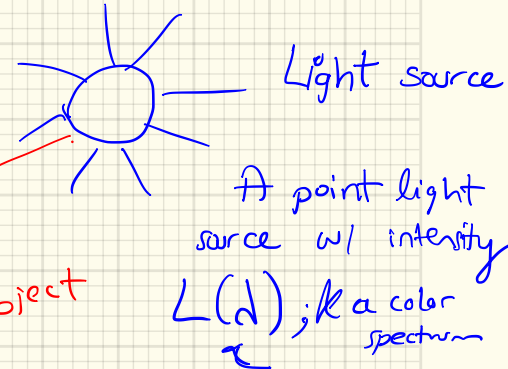 Light source
A point light
source w/ intensity
L(λ); a color
spectrum